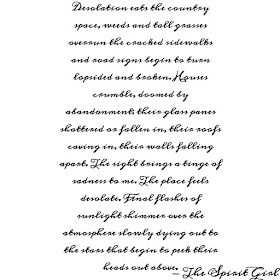 Desolation eats the country
space, weeds and tall grasses
overrun the cracked sidewalks
and road signs begin to turn
lopsided and broken. Houses
crumble, doomed by
abandonment; their glass panes
shattered or fallen in, their roofs
caving in, their walls falling
apart. The sight brings a tinge of
sadness to me. The place feels
desolate. Final flashes of
sunlight shimmer over the
atmosphere slowly dying out to
the stars that begin to peek their
heads out above. – The Spirit Girl